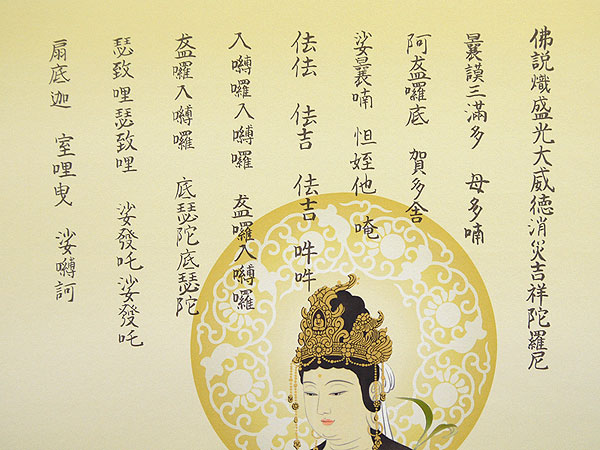 佛説熾盛光大威徳消災吉祥陀羅尼
曩謨三滿多 母多喃
阿盋囉底 賀多舍
娑曩喃 怛姪他 唵
佉佉 佉吉 佉吉 吽吽
入嚩囉入嚩囉 盋囉入嚩囉
盋囉入嚩囉 底瑟陀底瑟陀
瑟致哩瑟致哩 娑發吒娑發吒
扇底迦 室哩曳 娑嚩訶